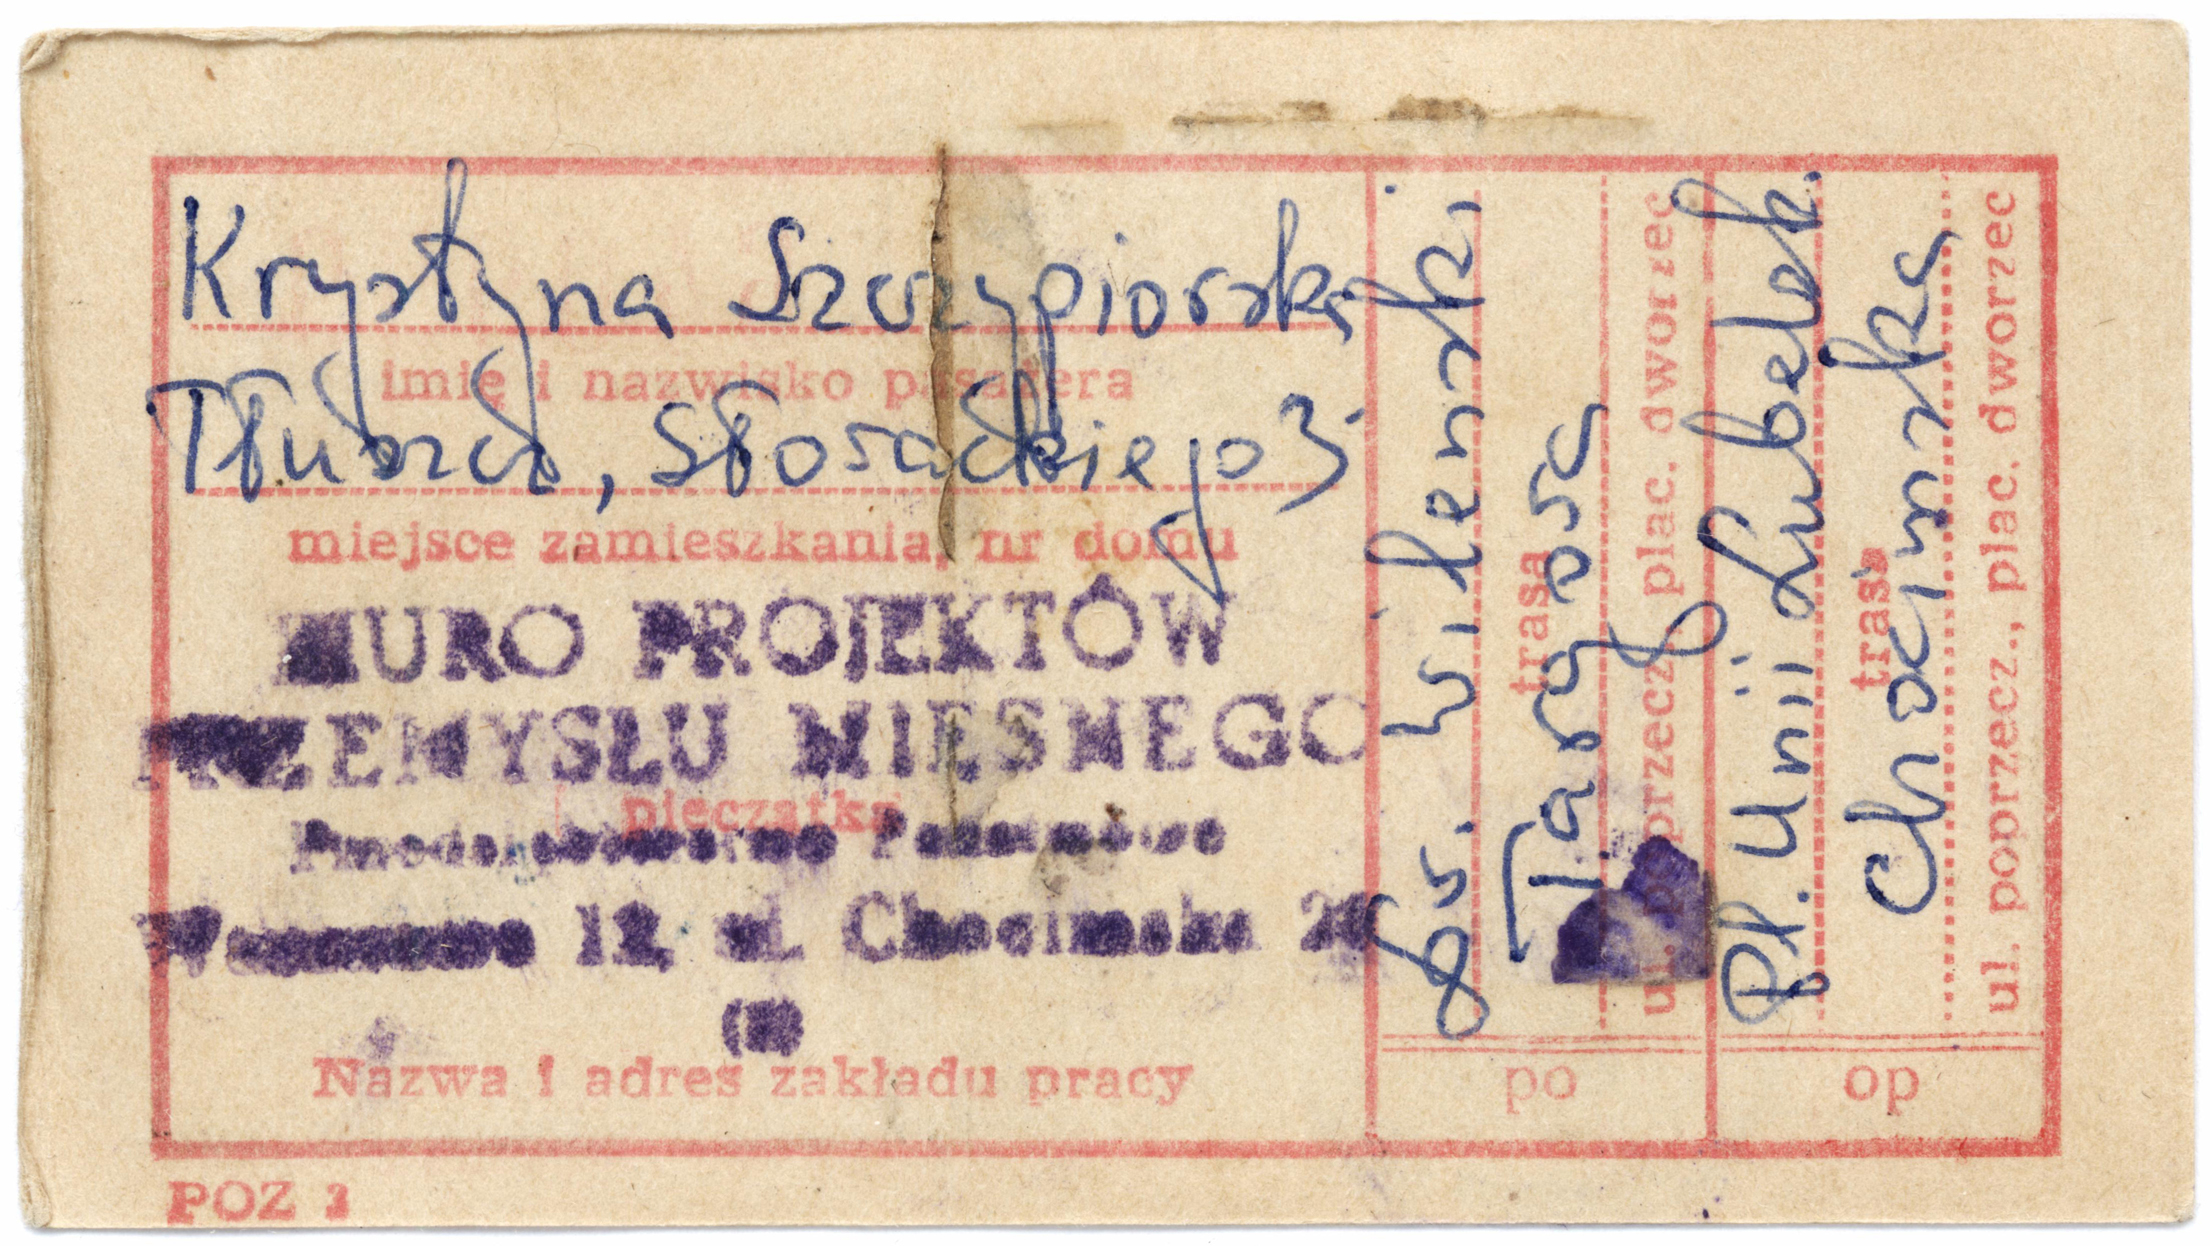 Krystyna Szczypiorska
imię i nazwisko pasażera
Tłuszcz, Słowackiego 3
miejsce zamieszkania, nr domu
BIURO PROJEKTÓW
PRZEMYSŁU MIĘSNEGO
pieczątka
Przedsiębiorstwo Państwowe
Warszawa 12, ul. Chocimska 28
Nazwa i adres zakładu pracy
POZ
Dw. Wileńsk.
trasa
Targowa
ul. poprzecz., plac. dworzec
po
Pl. Unii Lubelsk.
trasa
Chocimska
ul. poprzecz., plac. dworzec
op